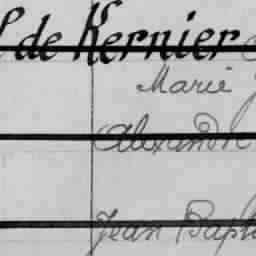 de Kernier
Marie
Alexandr
Jean Bapt